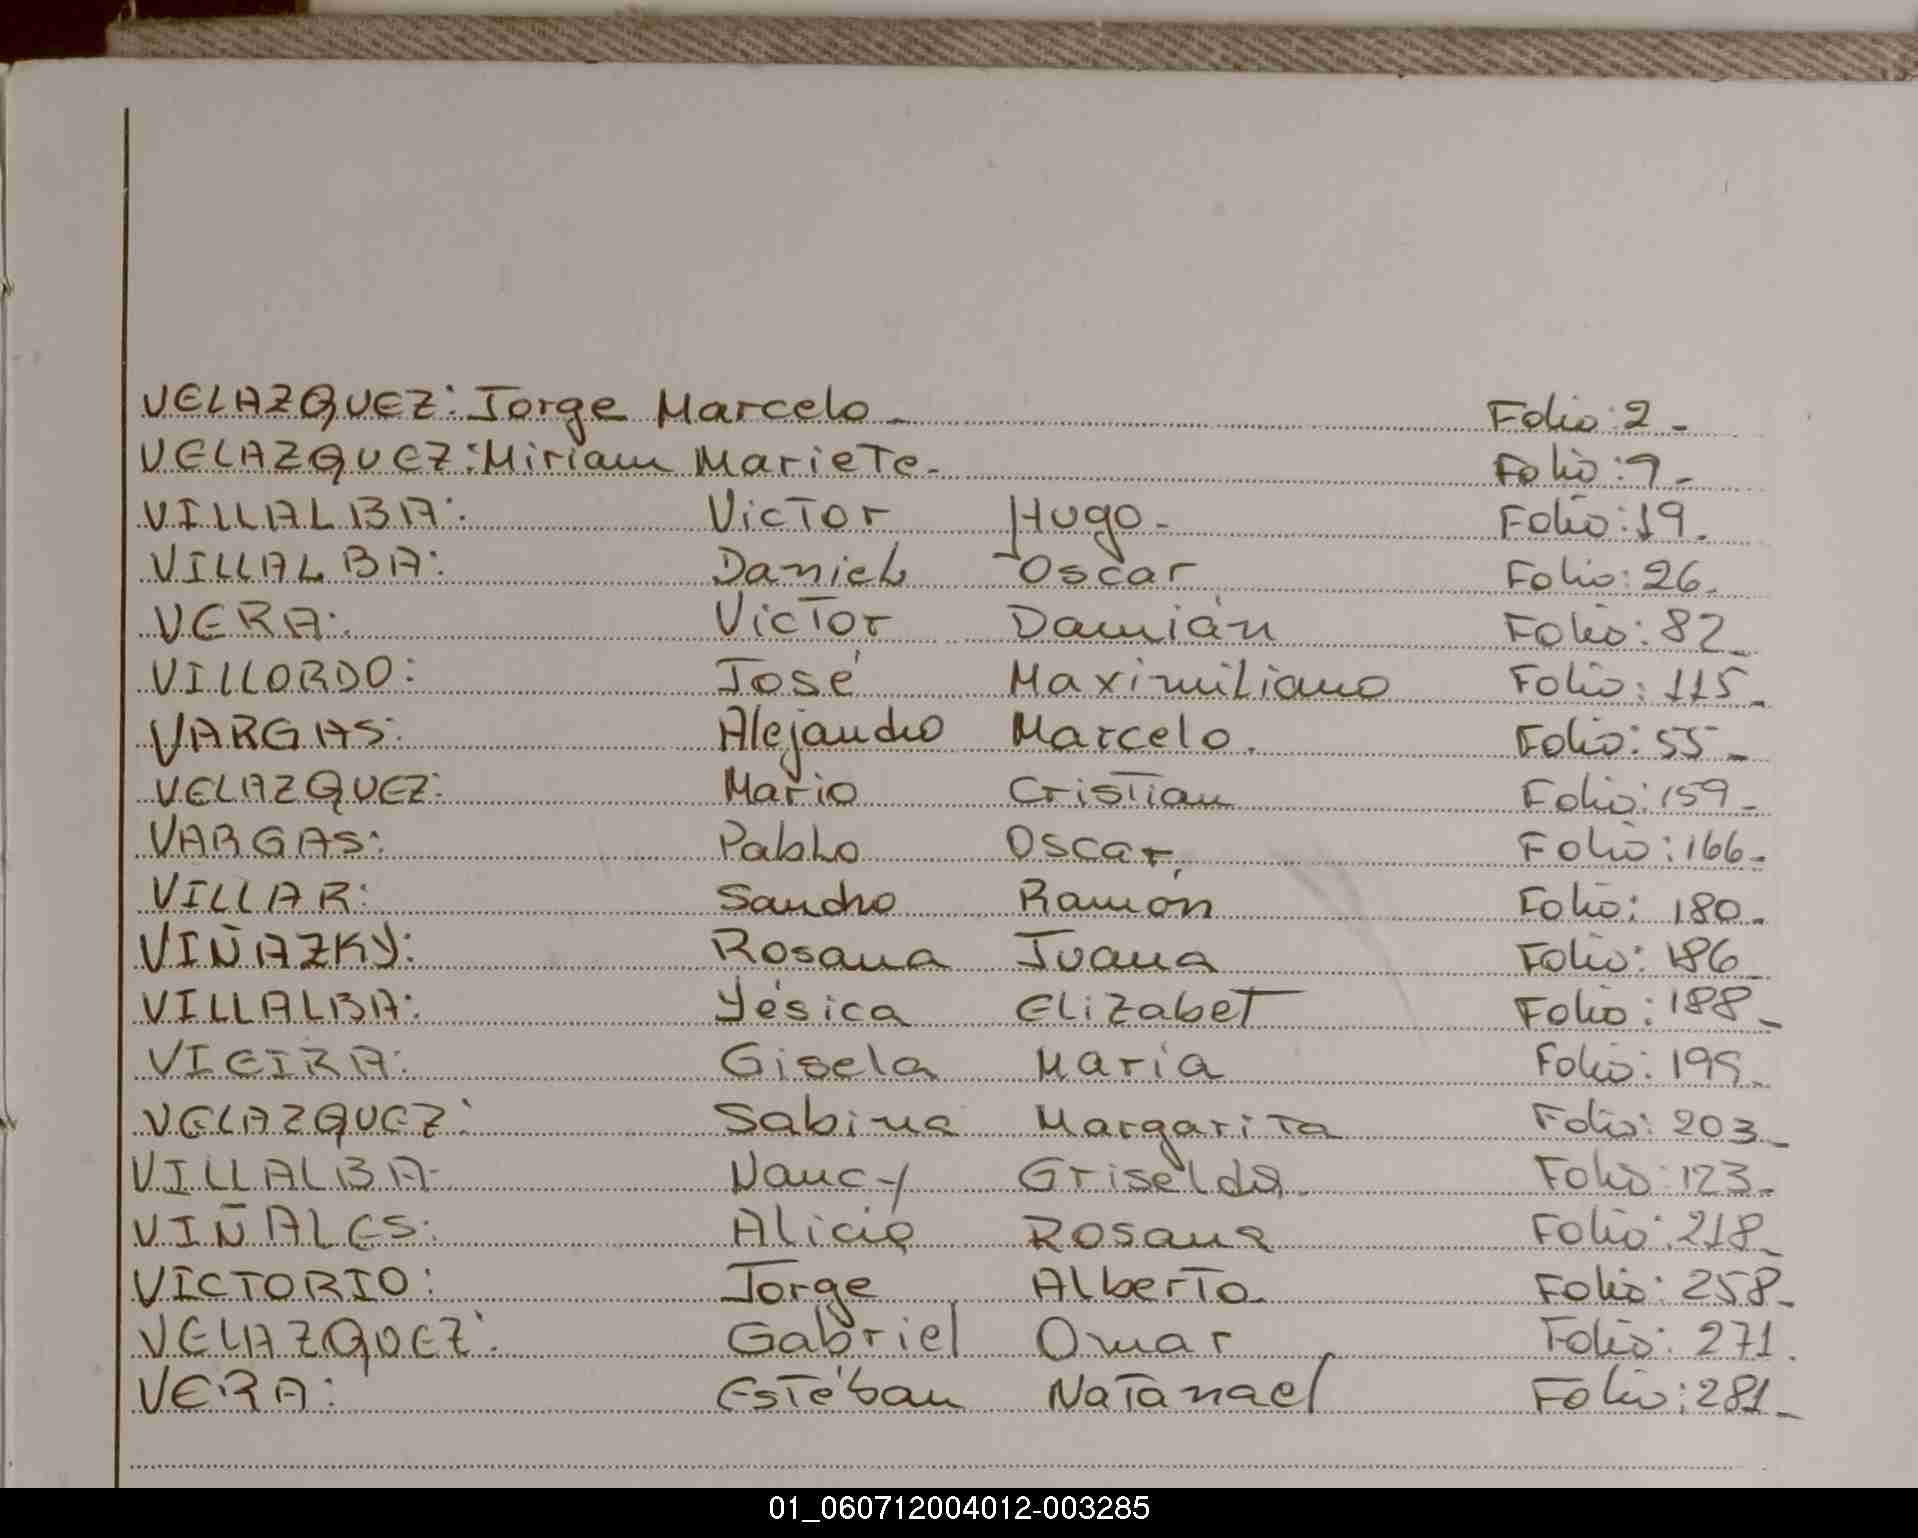 VELAZQUEZ: Jorge Marcelo - Folio: 2 -
VELAZQUEZ: Miriam Mariete - Folio: 7 -
VILLALBA: Victor Hugo - Folio: 19 -
VILLALBA: Daniel Oscar Folio: 26 -
VERA: Victor Damián Folio: 82 -
VILLORDO: José Maximiliano Folio: 115 -
VARGAS: Alejandro Marcelo. Folio: 55 -
VELAZQUEZ: Mario Cristian Folio: 159 -
VARGAS: Pablo Oscar Folio: 166 -
VILLAR: Sandro Ramón Folio: 180 -
VIÑAZKY: Rosana Juana Folio: 186 -
VILLALBA: Yésica Elizabet Folio: 188 -
VIEIRA: Gisela María Folio: 195 -
VELAZQUEZ: Sabina Margarita Folio: 203 -
VILLALBA - Nancy Griselda. Folio: 123 -
VIÑALES: Alicia Rosana Folio: 218 -
VICTORIO: Jorge Alberto Folio: 258 -
VELAZQUEZ: Gabriel Omar Folio: 271.
VERA: Estéban Natanael Folio: 281 -
01_060712004012-003285